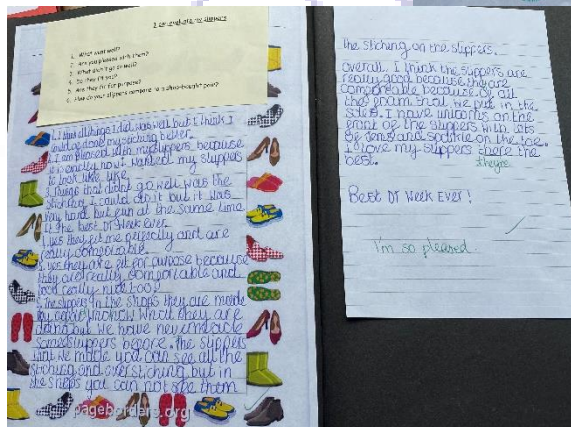 I can evaluate my slippers
1. What went well?
2. Are you pleased with them?
3. What didn't go so well?
4. Do they fit you?
5. Are they fit for purpose?
6. How do your slippers compare to shop-bought pairs?
1. I think things I did was well but I think I
could of done my stiching better.
2. I am pleased with my slippers because
it's exactly how I wanted my slippers
to look like.
3. Things that didn't go well was the
stiching. I could do it but it was
very hard but fun at the same time
it the best DT Week ever.
4. yes they fit me perfectly and are
really comforable.
5. yes they are fit for purpose because
they are really comforable and
look really nice too?
6. The slippers in the shops they are made
by people who know what they are
doing but we have never made
some slippers before. The slippers
that we made you can see all the
stiching and overstiching but in
the shops you can not see them
pageborders.org
the stiching on the slippers.
Overall, I think the slippers are
really good because they are
comforable because of all
the foam that we put in the
sides. I have unicorns on the
front of the slippers with lots
of gems and sparkle on the toe.
I love my slippers there the
best.
they're
Best DT Week Ever!
I'm so pleased